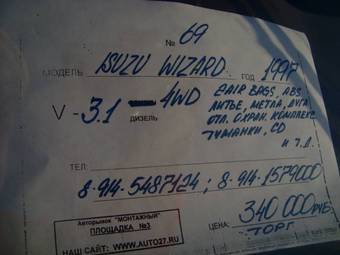 № 69
МОДЕЛЬ ISUZU WIZARD ГОД 1997
V - 3.1 4WD 2 AIR BAGS, ABS
ДИЗЕЛЬ ЛИТЬЕ, МЕТАЛ, ДУГА
ОТЛ. ОХРАН. КОМПЛЕКС
ТУМАНКИ, CD
И Т.Д.
ТЕЛ:
8-914-5487124; 8-914-1579000
Авторынок "МОНТАЖНЫЙ"
ПЛОЩАДКА №3
НАШ САЙТ: WWW.AUTO27.RU
ЦЕНА: 340 000 РУБ.
ТОРГ